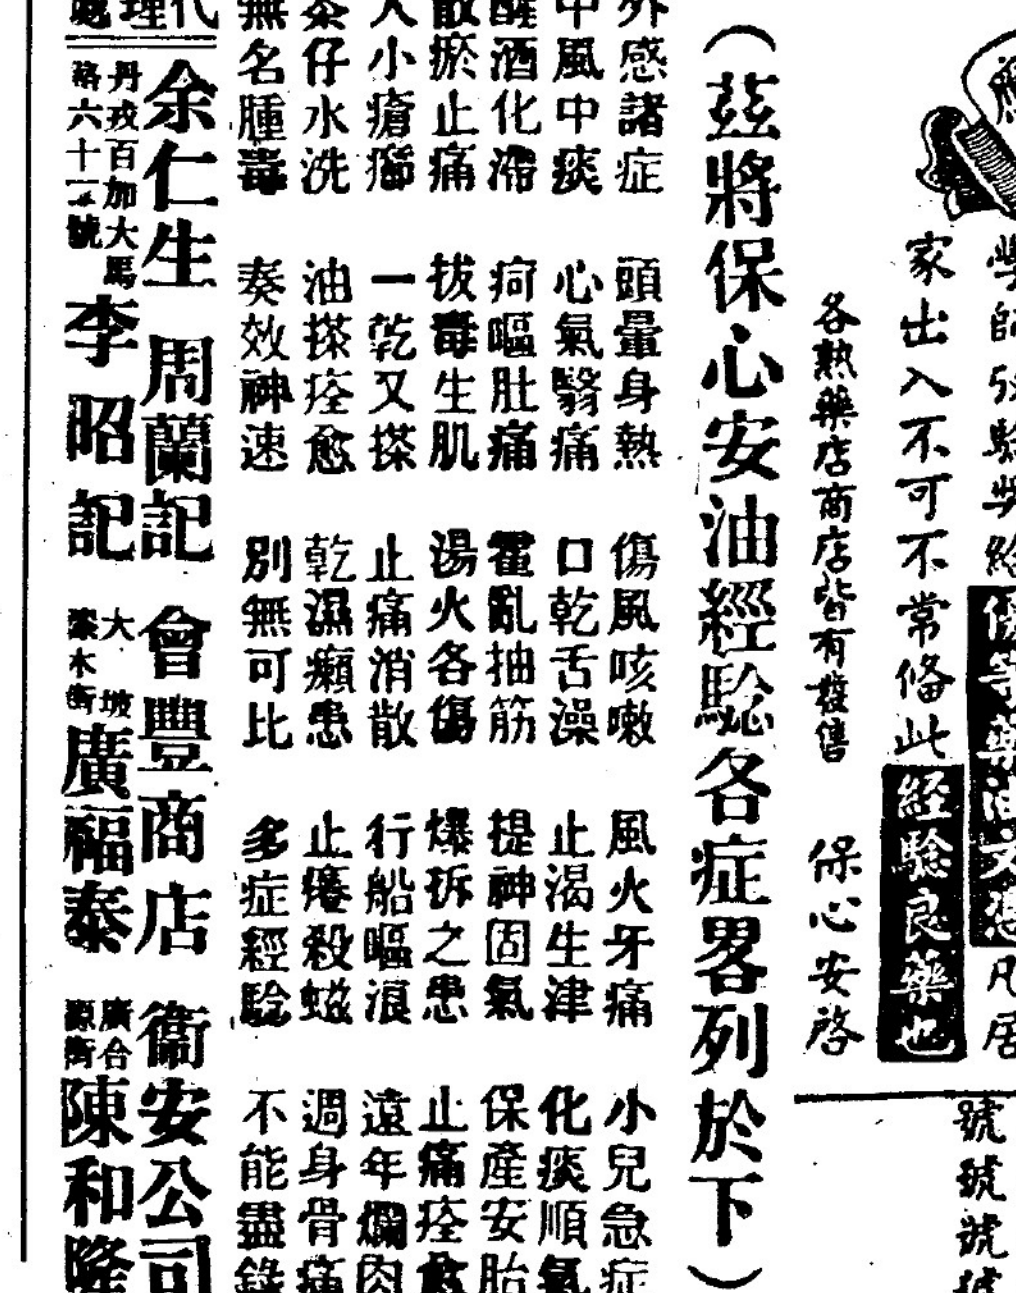 家出入不可不常俻此經驗良藥也
各熟藥店商店皆有發售 保心安啓
（茲將保心安油經騐各症畧列於下）
外感諸症 頭暈身熱 傷風咳嗽 風火牙痛 小兒急症
中風中痰 心氣翳痛 口乾舌澡 止渴生津 化痰順氣
醒酒化滯 疴嘔肚痛 霍亂抽筋 提神固氣 保產安胎
散瘀止痛 拔毒生肌 湯火各傷 爆拆之患 止痛痊愈
大小瘡癤 一乾又搽 止痛消散 行船嘔浪 遠年爛肉
茶仔水洗 油搽痊愈 乾濕癩患 止癢殺蟛 週身骨痛
無名腫毒 奏效神速 別無可比 多症經騐 不能盡錄
代理處
余仁生 周蘭記 會豐商店 衞安公司
丹戎百加大馬
路六十一號
李昭記
大坡
漆木街
廣福泰
廣合
源街
陳和隆
號號號號